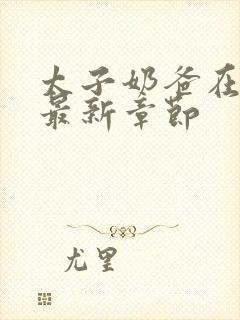 太子奶爸在
最新章节
尤里